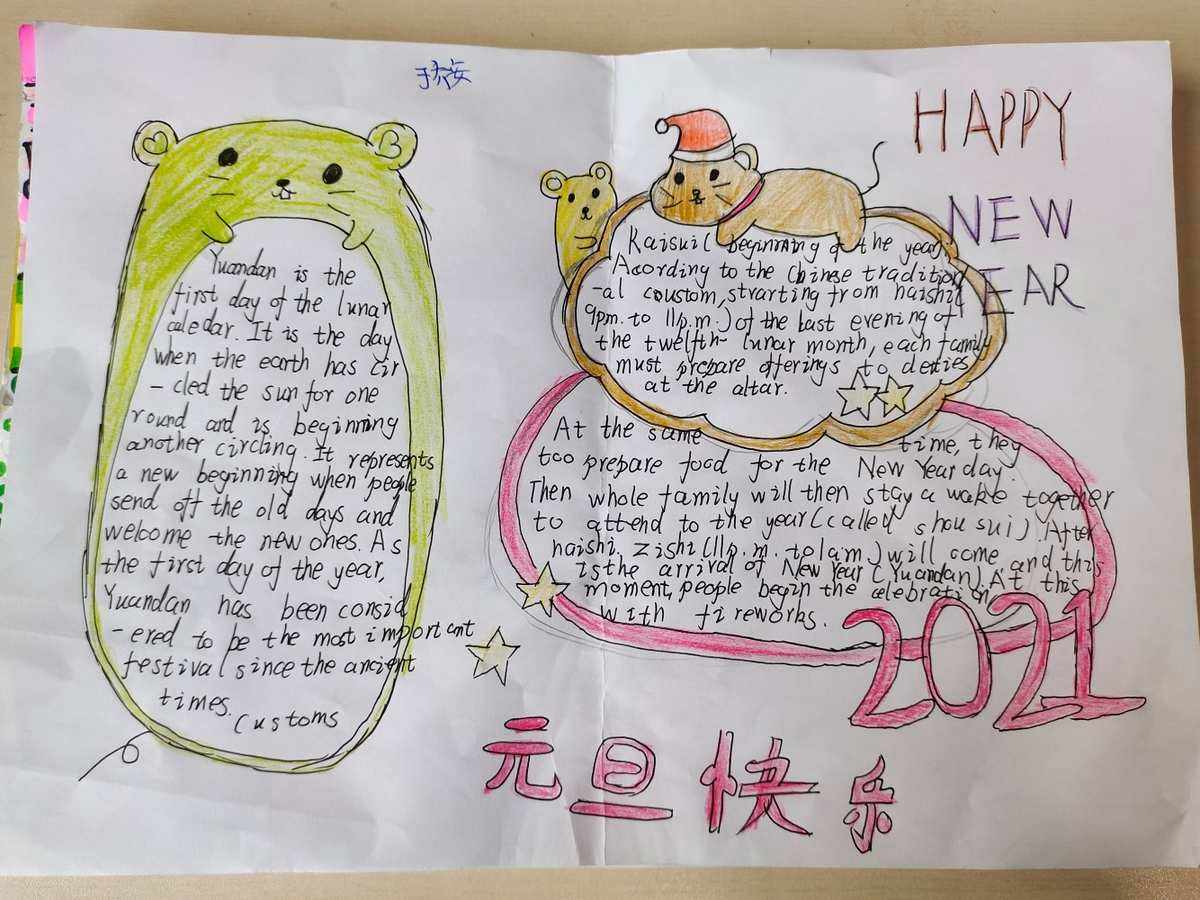 Yuandan is the
first day of the lunar
caledar. It is the day
when the earth has cir
-cled the sun for one
round and is beginning
another circling. It represents
a new beginning when people
send off the old days and
welcome the new ones. As
the first day of the year,
Yuandan has been consid
-ered to be the most important
festival since the ancient
times.
Customs
HAPPY
NEW
YEAR
Kaisui( beginning of the year)
Acording to the Chinese tradition
-al coustom, strarting from haishi(
9pm. to 11p.m.) of the last evening of
the twelfth- lunar month, each family
must prepare offerings to deities
at the altar.
At the same time, they
too prepare food for the New Year day.
Then whole family will then stay a wake together
to attend to the year (called shousui). After
haishi, zishi (11p.m. to 1am.) will come, and this
is the arrival of New Year (Yuandan). At this
moment, people begin the celebration
with fireworks.
2021
元旦快乐